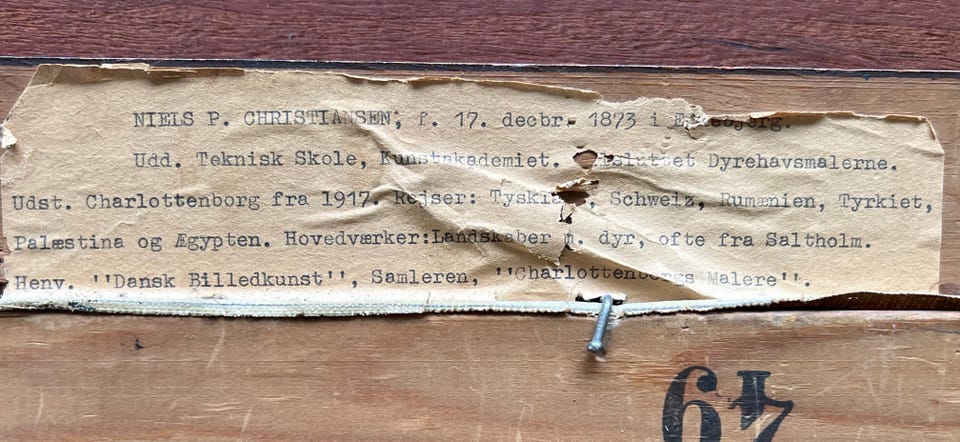 NIELS P. CHRISTIANSEN, f. 17. decbr. 1873 i
Udd. Teknisk Skole, Kunstakademiet. Tilsluttet Dyrehavsmalerne.
Udst. Charlottenborg fra 1917. Rejser: Tyskland, Schweiz, Rumænien, Tyrkiet,
Palæstina og Ægypten. Hovedværker:Landskaber m. dyr, ofte fra Saltholm.
Henv. ''Dansk Billedkunst'', Samleren, ''Charlottenborgs Malere''.
49